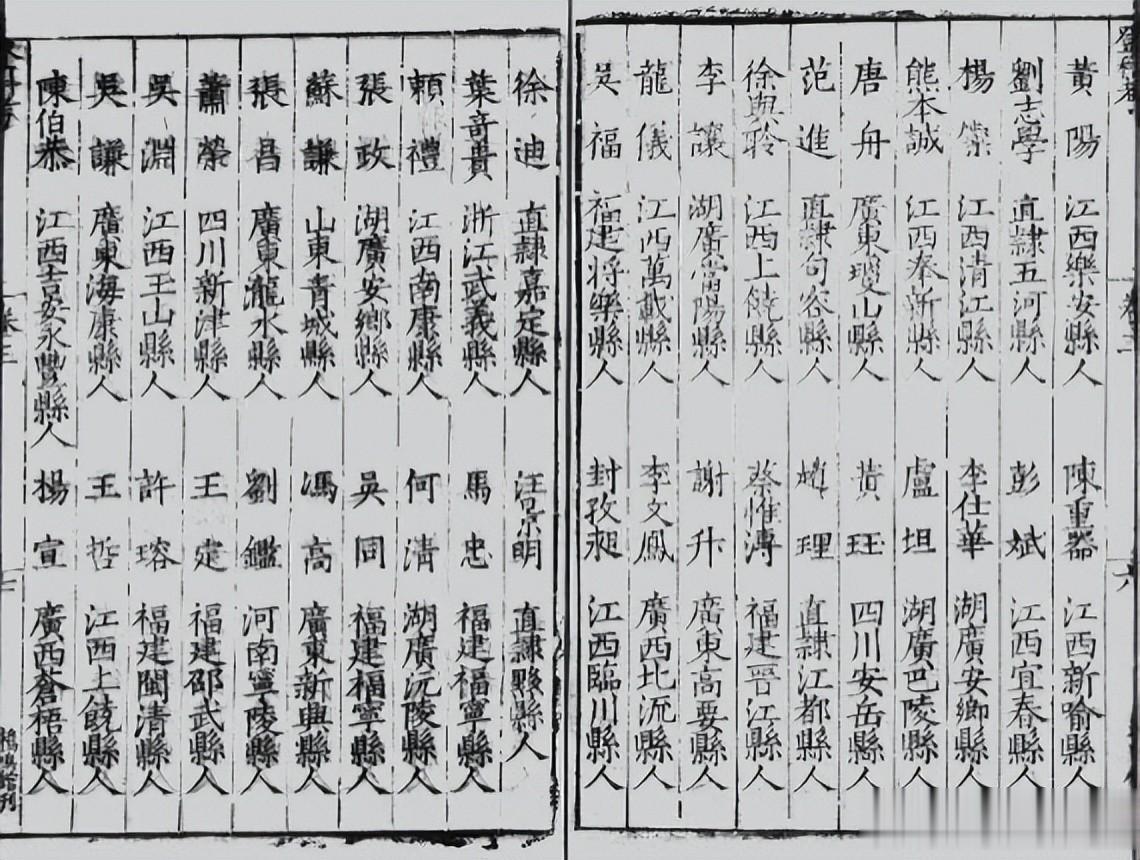 黃陽 江西樂安縣人 陳重器 江西新喻縣人
劉志學 直隸五河縣人 彭斌 江西宜春縣人
楊榮 江西清江縣人 李仕華 湖廣安鄉縣人
熊本誠 江西奉新縣人 盧坦 湖廣巴陵縣人
唐舟 廣東瓊山縣人 黃玨 四川安岳縣人
范進 直隸句容縣人 趙理 直隸江都縣人
徐與聆 江西上饒縣人 蔡惟溥 福建晉江縣人
李讓 湖廣當陽縣人 謝升 廣東高要縣人
龍儀 江西萬載縣人 李文鳳 廣西北流縣人
吳福 福建將樂縣人 封孜昶 江西臨川縣人
徐迪 直隸嘉定縣人 汪景明 直隸黟縣人
葉奇貴 浙江武義縣人 馬忠 福建福寧縣人
賴禮 江西南康縣人 何清 湖廣沅陵縣人
張政 湖廣安鄉縣人 吳同 福建福寧縣人
蘇謙 山東青城縣人 馮高 廣東新興縣人
張昌 廣東瀧水縣人 劉鑑 河南寧陵縣人
蕭榮 四川新津縣人 王定 福建邵武縣人
吳淵 江西玉山縣人 許瑢 福建閩清縣人
吳謙 廣東海康縣人 王哲 江西上饒縣人
陳伯恭 江西吉安永豐縣人 楊宣 廣西蒼梧縣人
卷三